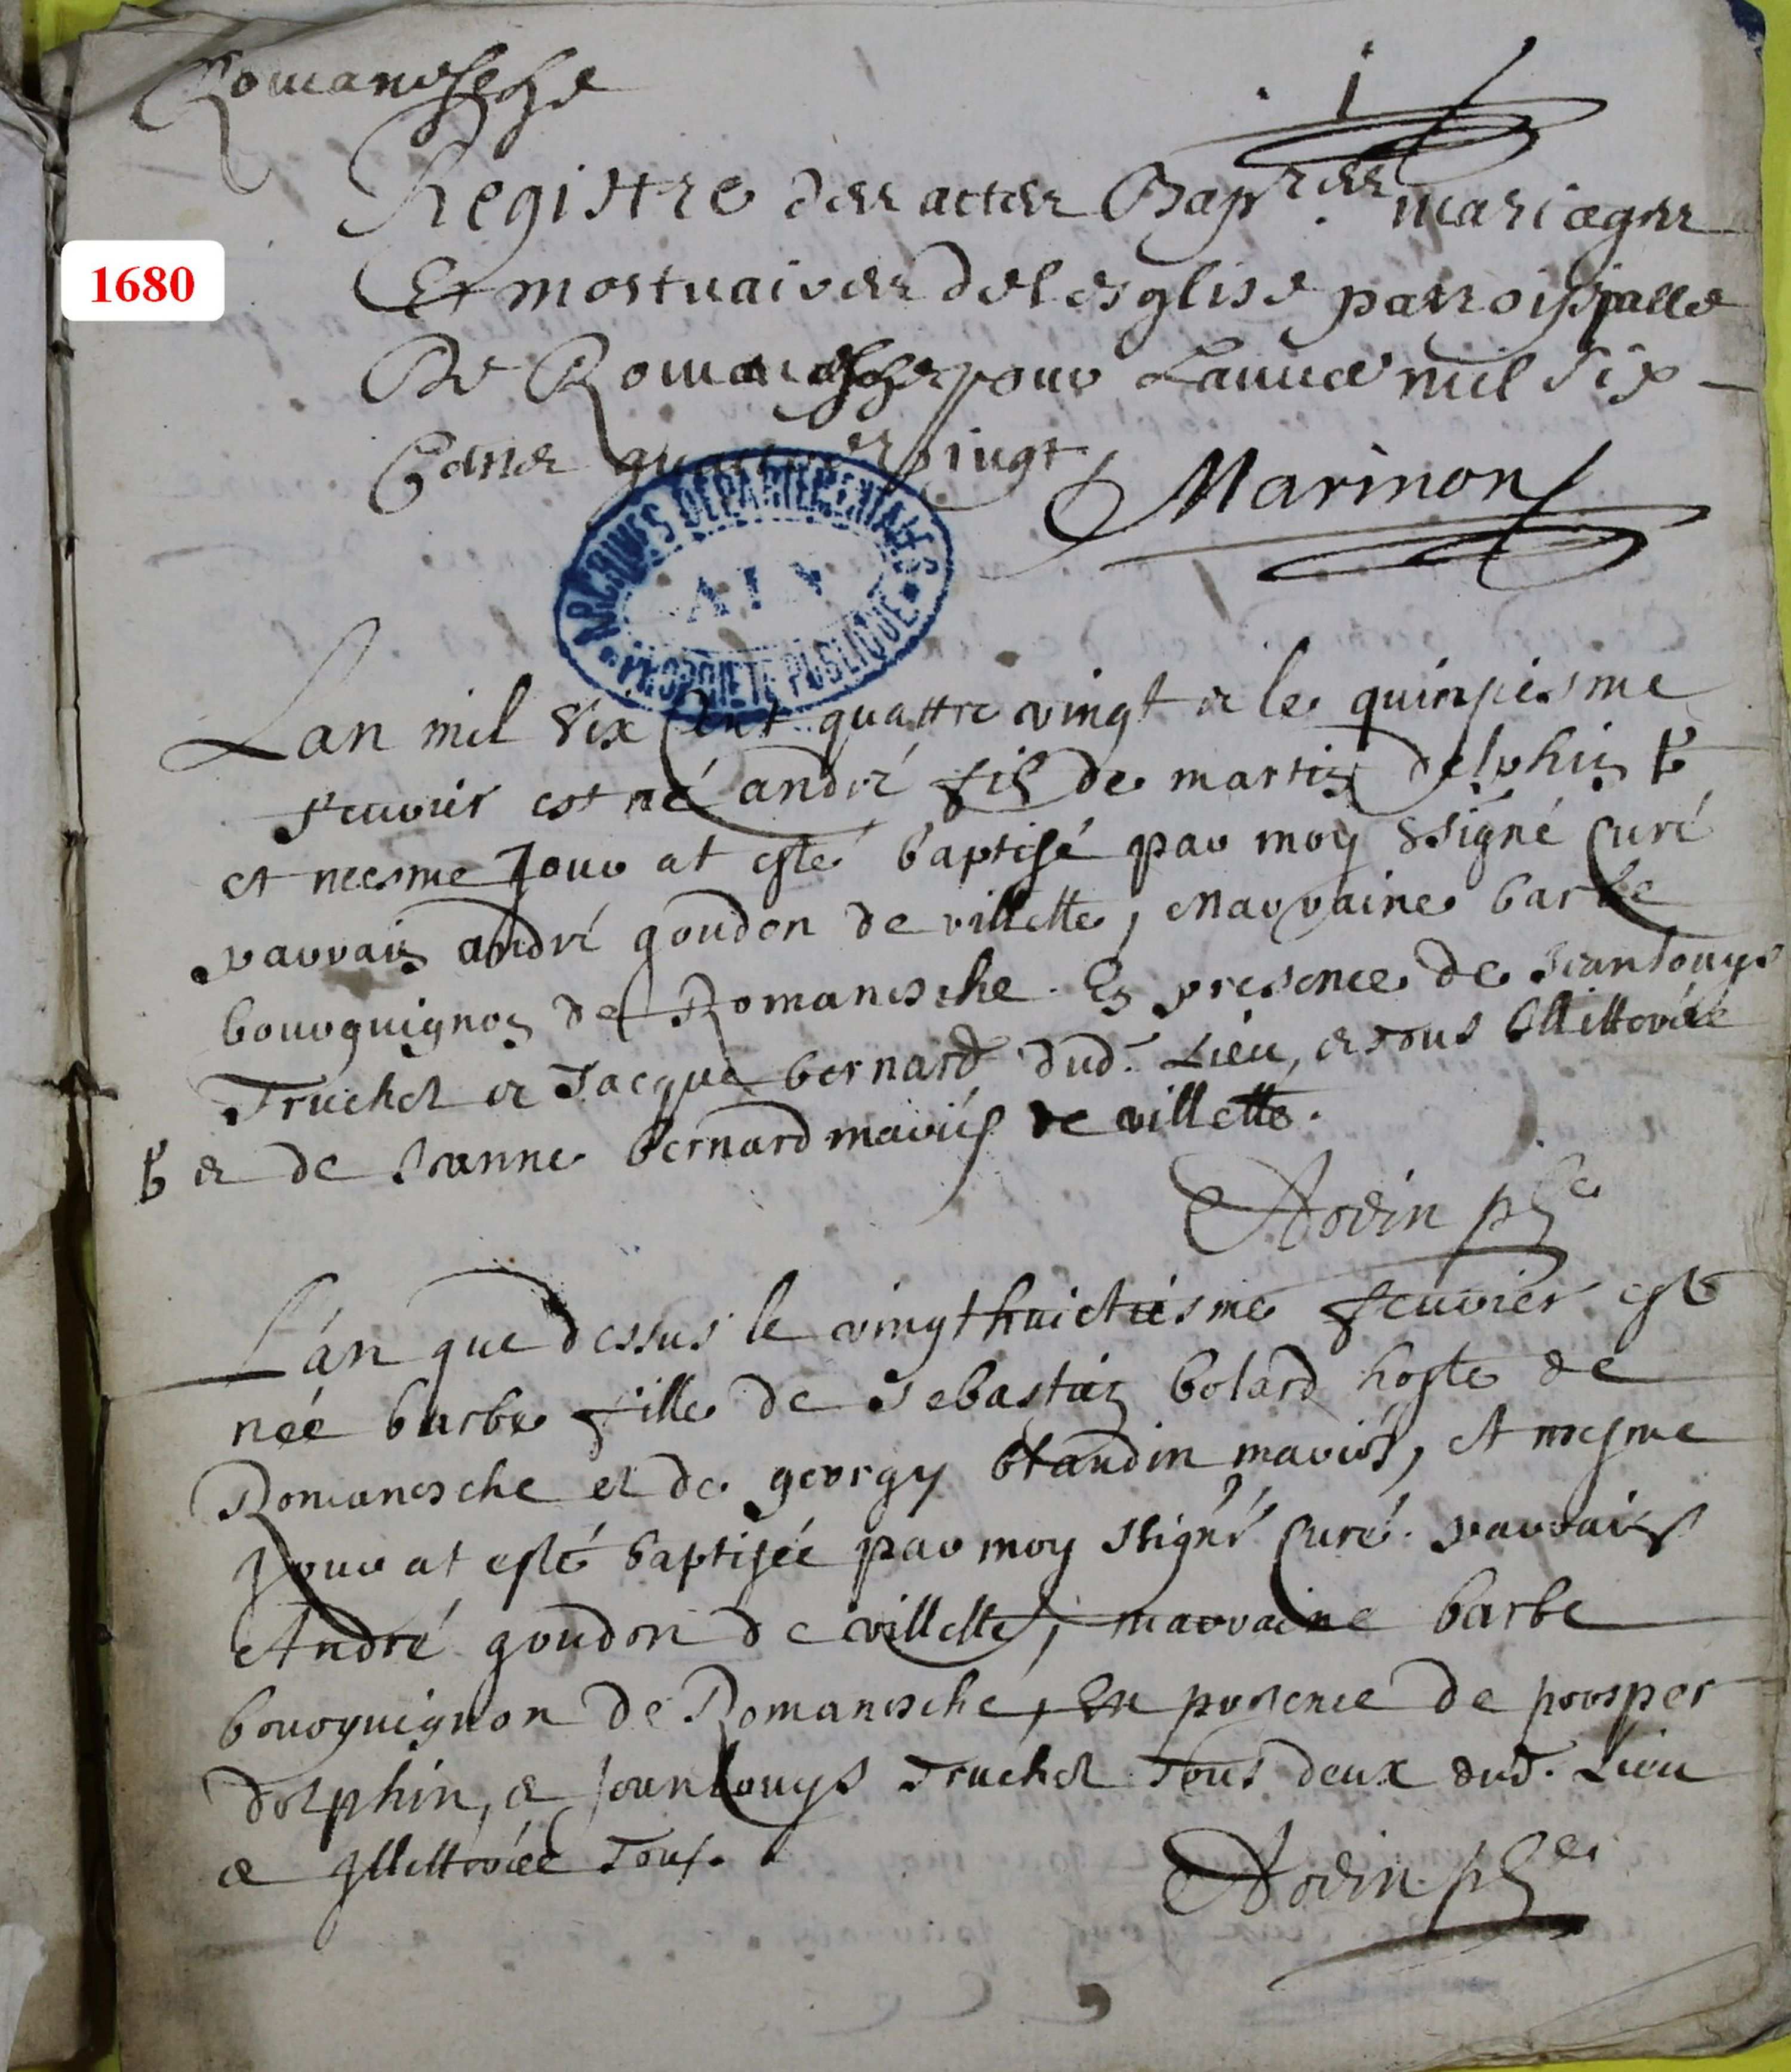 Romanesche
1
Registre des actes Bapt.es mariages
Et mortuaires de lesglise parroissialle
De Romanesche pour Lannee mil six
Cents quattre vingt
Marinon
1680
ARCHIVES DEPARTEMENTALES
AIN
PROPRIETE PUBLIQUE
Lan mil six Cent quattre vingt & le quinziesme
feuvrier est né andré fils de martin delphin
et mesme Jour at esté baptisé par moy ssigné Curé
parrain andré goudon de villette, marraine barbe
bourguignon de Romanesche. En presence de Jeanlouys
Truchet & Jacque bernard dud. Lieu, & tous Illitterée
& de Jeanne bernard mariés de villette.
Lán que dessus le vingthuictiesme feuvrier est
née barbe fille de sebastien bolard hoste de
Romanesche et de georgy blandin mariés, et mesme
Jour at esté baptisée par moy ssigné Curé. parrain
André goudon de villette, marraine barbe
bourguignon de Romanesche, En presence de prosper
dolphin, & Jeanlouys Truchet Tous deux dud. Lieu
& Illitterée Tous.